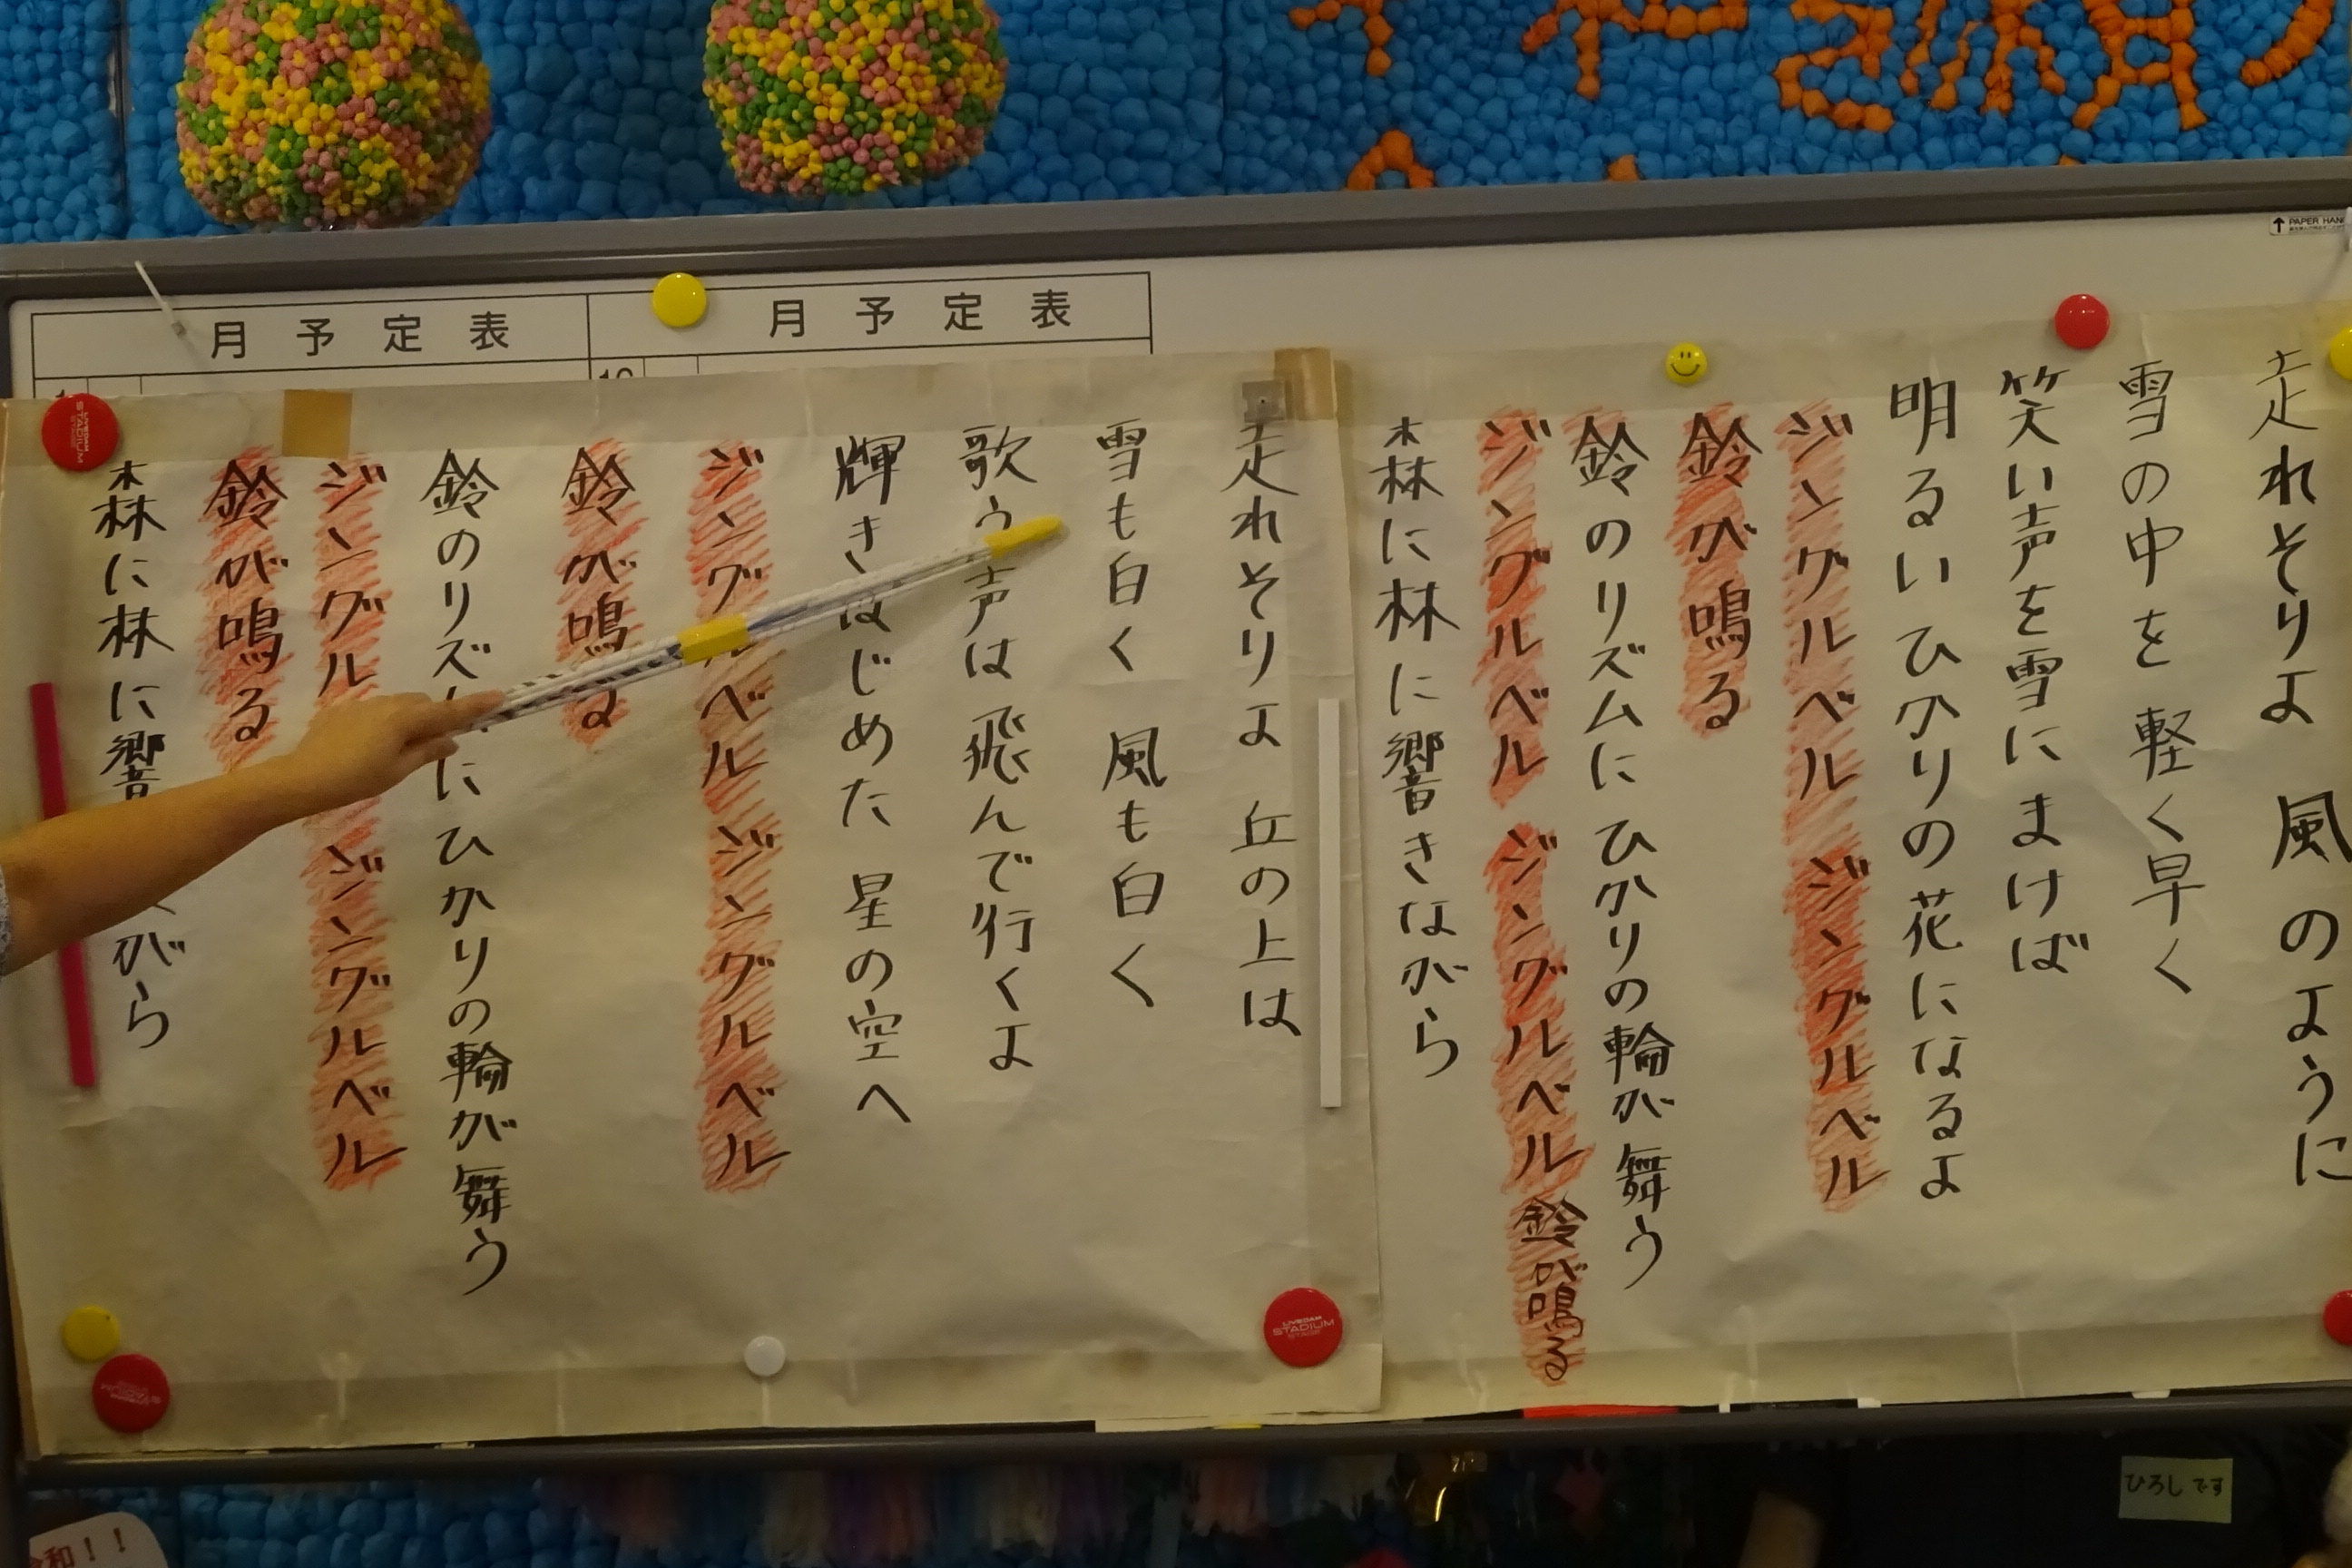 PAPER HAN
月予定表
月予定表
走れそりよ 風のように
雪の中を 軽く早く
笑い声を雪にまけば
明るいひかりの花になるよ
ジングルベル ジングルベル
鈴が鳴る
鈴のリズムに ひかりの輪が舞う
ジングルベル ジングルベル 鈴が鳴る
森林に林に響きながら
走れそりよ 丘の上は
雪も白く 風も白く
歌う声は飛んで行くよ
輝きはじめた 星の空へ
ジングルベル ジングルベル
鈴が鳴る
鈴のリズムに ひかりの輪が舞う
ジングル ジングルベル
鈴が鳴る
森林に林に響 がら
LIVEDAM STADIUM STAGE
LIVEDAM STADIUM STAGE
STADIUM
ひろしです
和!!